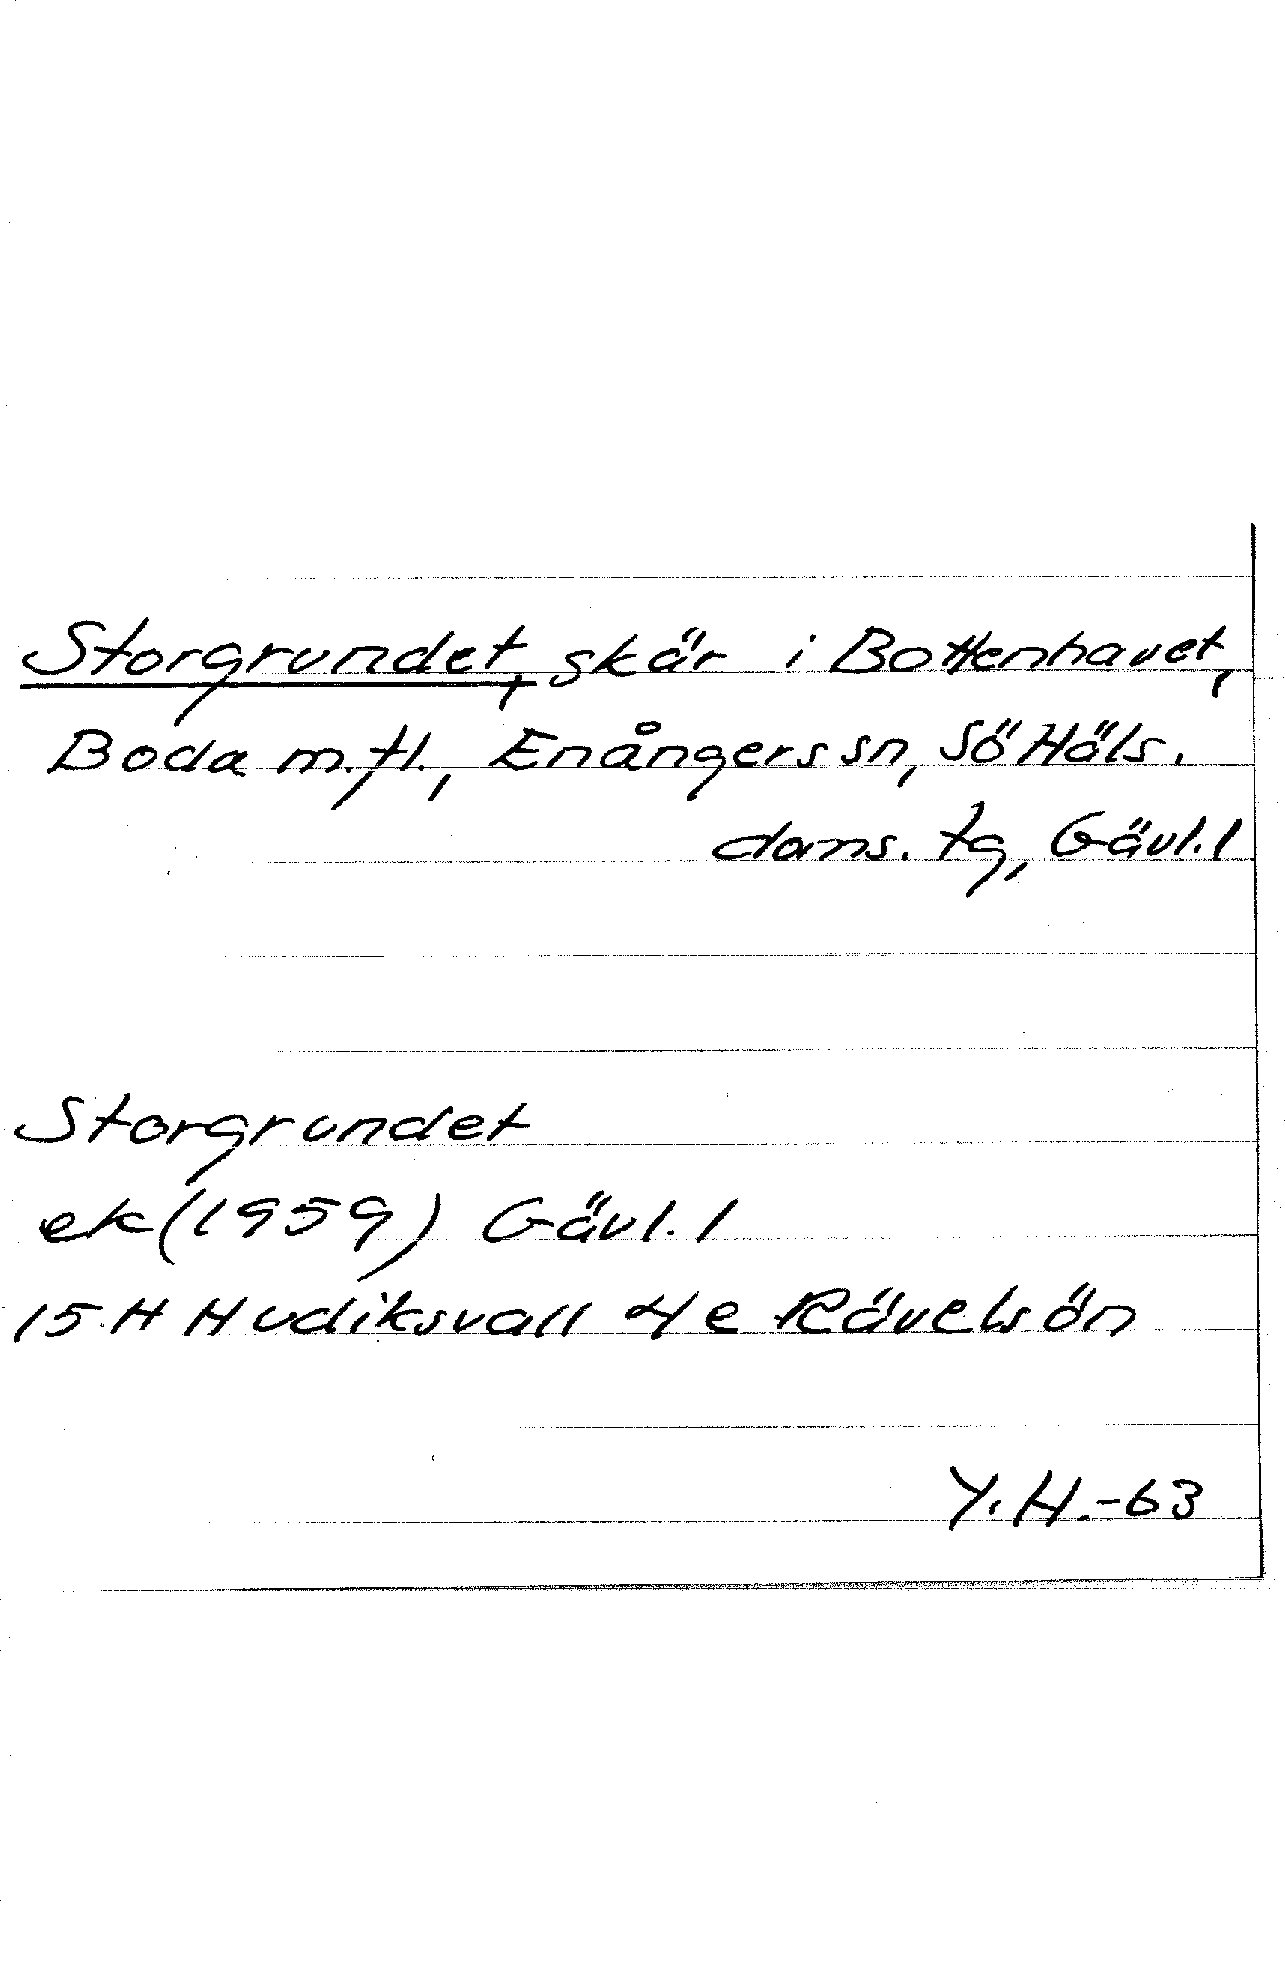 Storgrundet, skär i Bottenhavet,
Boda m.fl., Enångers sn, Sö Häls.
doms. tg, Gävl. l
Storgrundet
ek (1959) Gävl. l
15 H Hudiksvall 4e Rävelsön
Y. H. -63